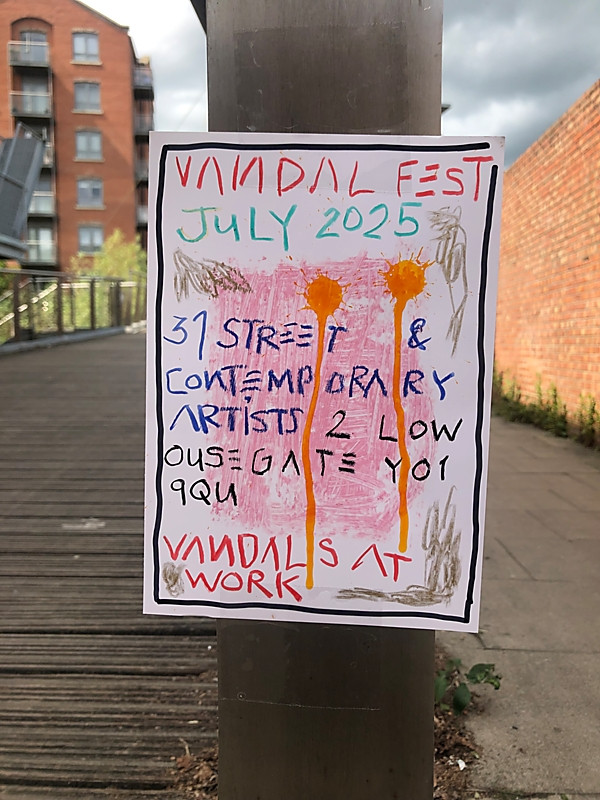 VANDAL FEST
JULY 2025
31 STREET &
CONTEMPORARY
ARTISTS 2 LOW
OUSEGATE YO1
9QU
VANDALS AT
WORK